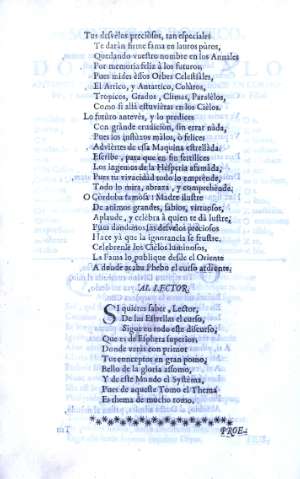 Tus desvelos preciosos, tan especiales
Te daràn firme fama en lauros puros,
Quedando vuestro nombre en los Annales
Por memoria feliz à los futuros;
Pues mides essos Orbes Celestiales,
El Artico, y Antartico, Colùros,
Tropicos, Grados, Climas, Paralèlos,
Como si allà estuvieras en los Cielos.
Lo futuro antevès, y lo predices
Con grande erudicion, sin errar nada,
Pues los influxos malos, ò felices
Adviertes de essa Maquina estrellada:
Escribe, para que en sì fertilices
Los Ingenios de la Hesperia afamàda,
Pues tu vivacidad todo lo emprende,
Todo lo mira, abraza, y comprehende.
O Cordoba famosa! Madre ilustre
De animos grandes, sabios, virtuosos,
Aplaude, y celebra à quien te dà lustre,
Pues dandonos sus desvelos preciosos
Hace yà que la ignorancia se frustre.
Celebrenle los Cielos luminosos,
La Fama lo publique desde el Oriente
A donde acaba Phebo el curso ardiente.
AL LECTOR.
SI quieres saber, Lector,
De las Estrellas el curso,
Sigue en todo este discurso,
Que es de Esphera superior.
Donde veràs con primor
Tus conceptos en gran pomo,
Bello de la gloria assomo,
Y de este Mundo el Systèma,
Pues de aqueste Tomo el Thema
Es thema de mucho tomo.
PROE-